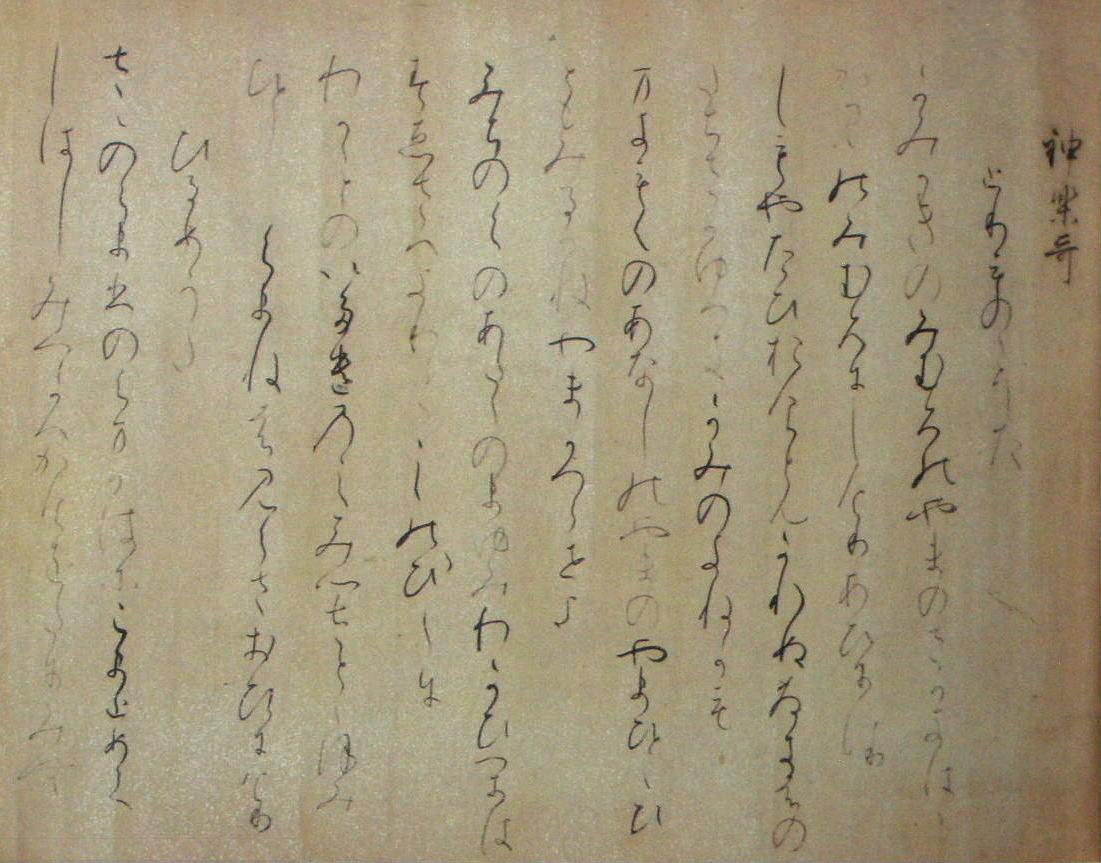 神楽哥
とりものゝうた
かみかきのみむろのやまのさかきはゝ
かみのみむろにしけりあひにけり
しもやたひおけとかれせぬさかきはの
たちさかゆへきかみのきねかも
万きもくのあなしのやまのやまひとゝひ
ともみるかねやまかつらせよ
みちのくのあたちのまゆみわかひかは
すゑさへよりこしのびしに
わかゝとのいたゐのしみつさとゝほみ
ひとしくまねはみくさおひにけり
ひるめのうた
さゝのくまひのくまかはにこまとめて
しはしみつかへかけをたにみむ